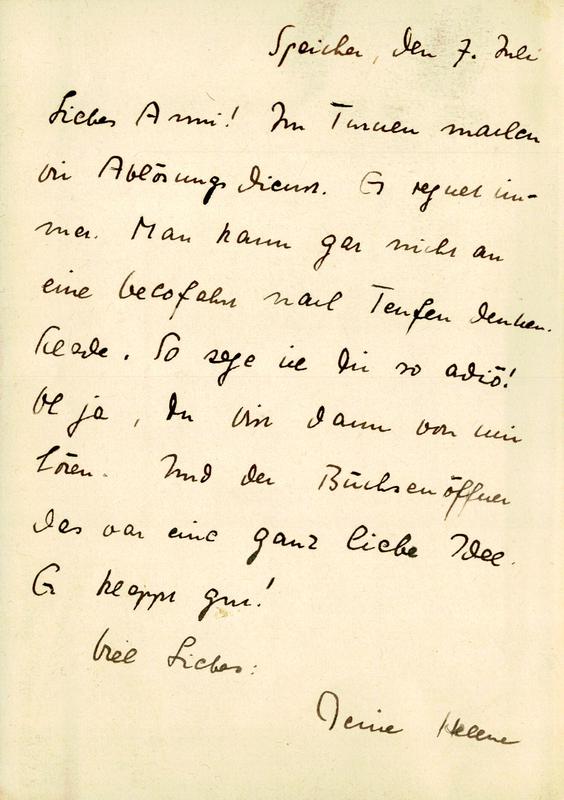 Speicher, den 7. Juli
Liebes Anni! Im Turnen machen
wir Ablösungsdienst. Es regnet im-
mer. Man kann gar nicht an
eine Velofahrt nach Teufen denken.
Schade. So sage ich Dir so adiö!
ja, Du wirst dann von mir
hören. Und der Büchsenöffner
das war eine ganz liebe Idee.
Es klappt gut!
Viel Liebes:
Deine Helene